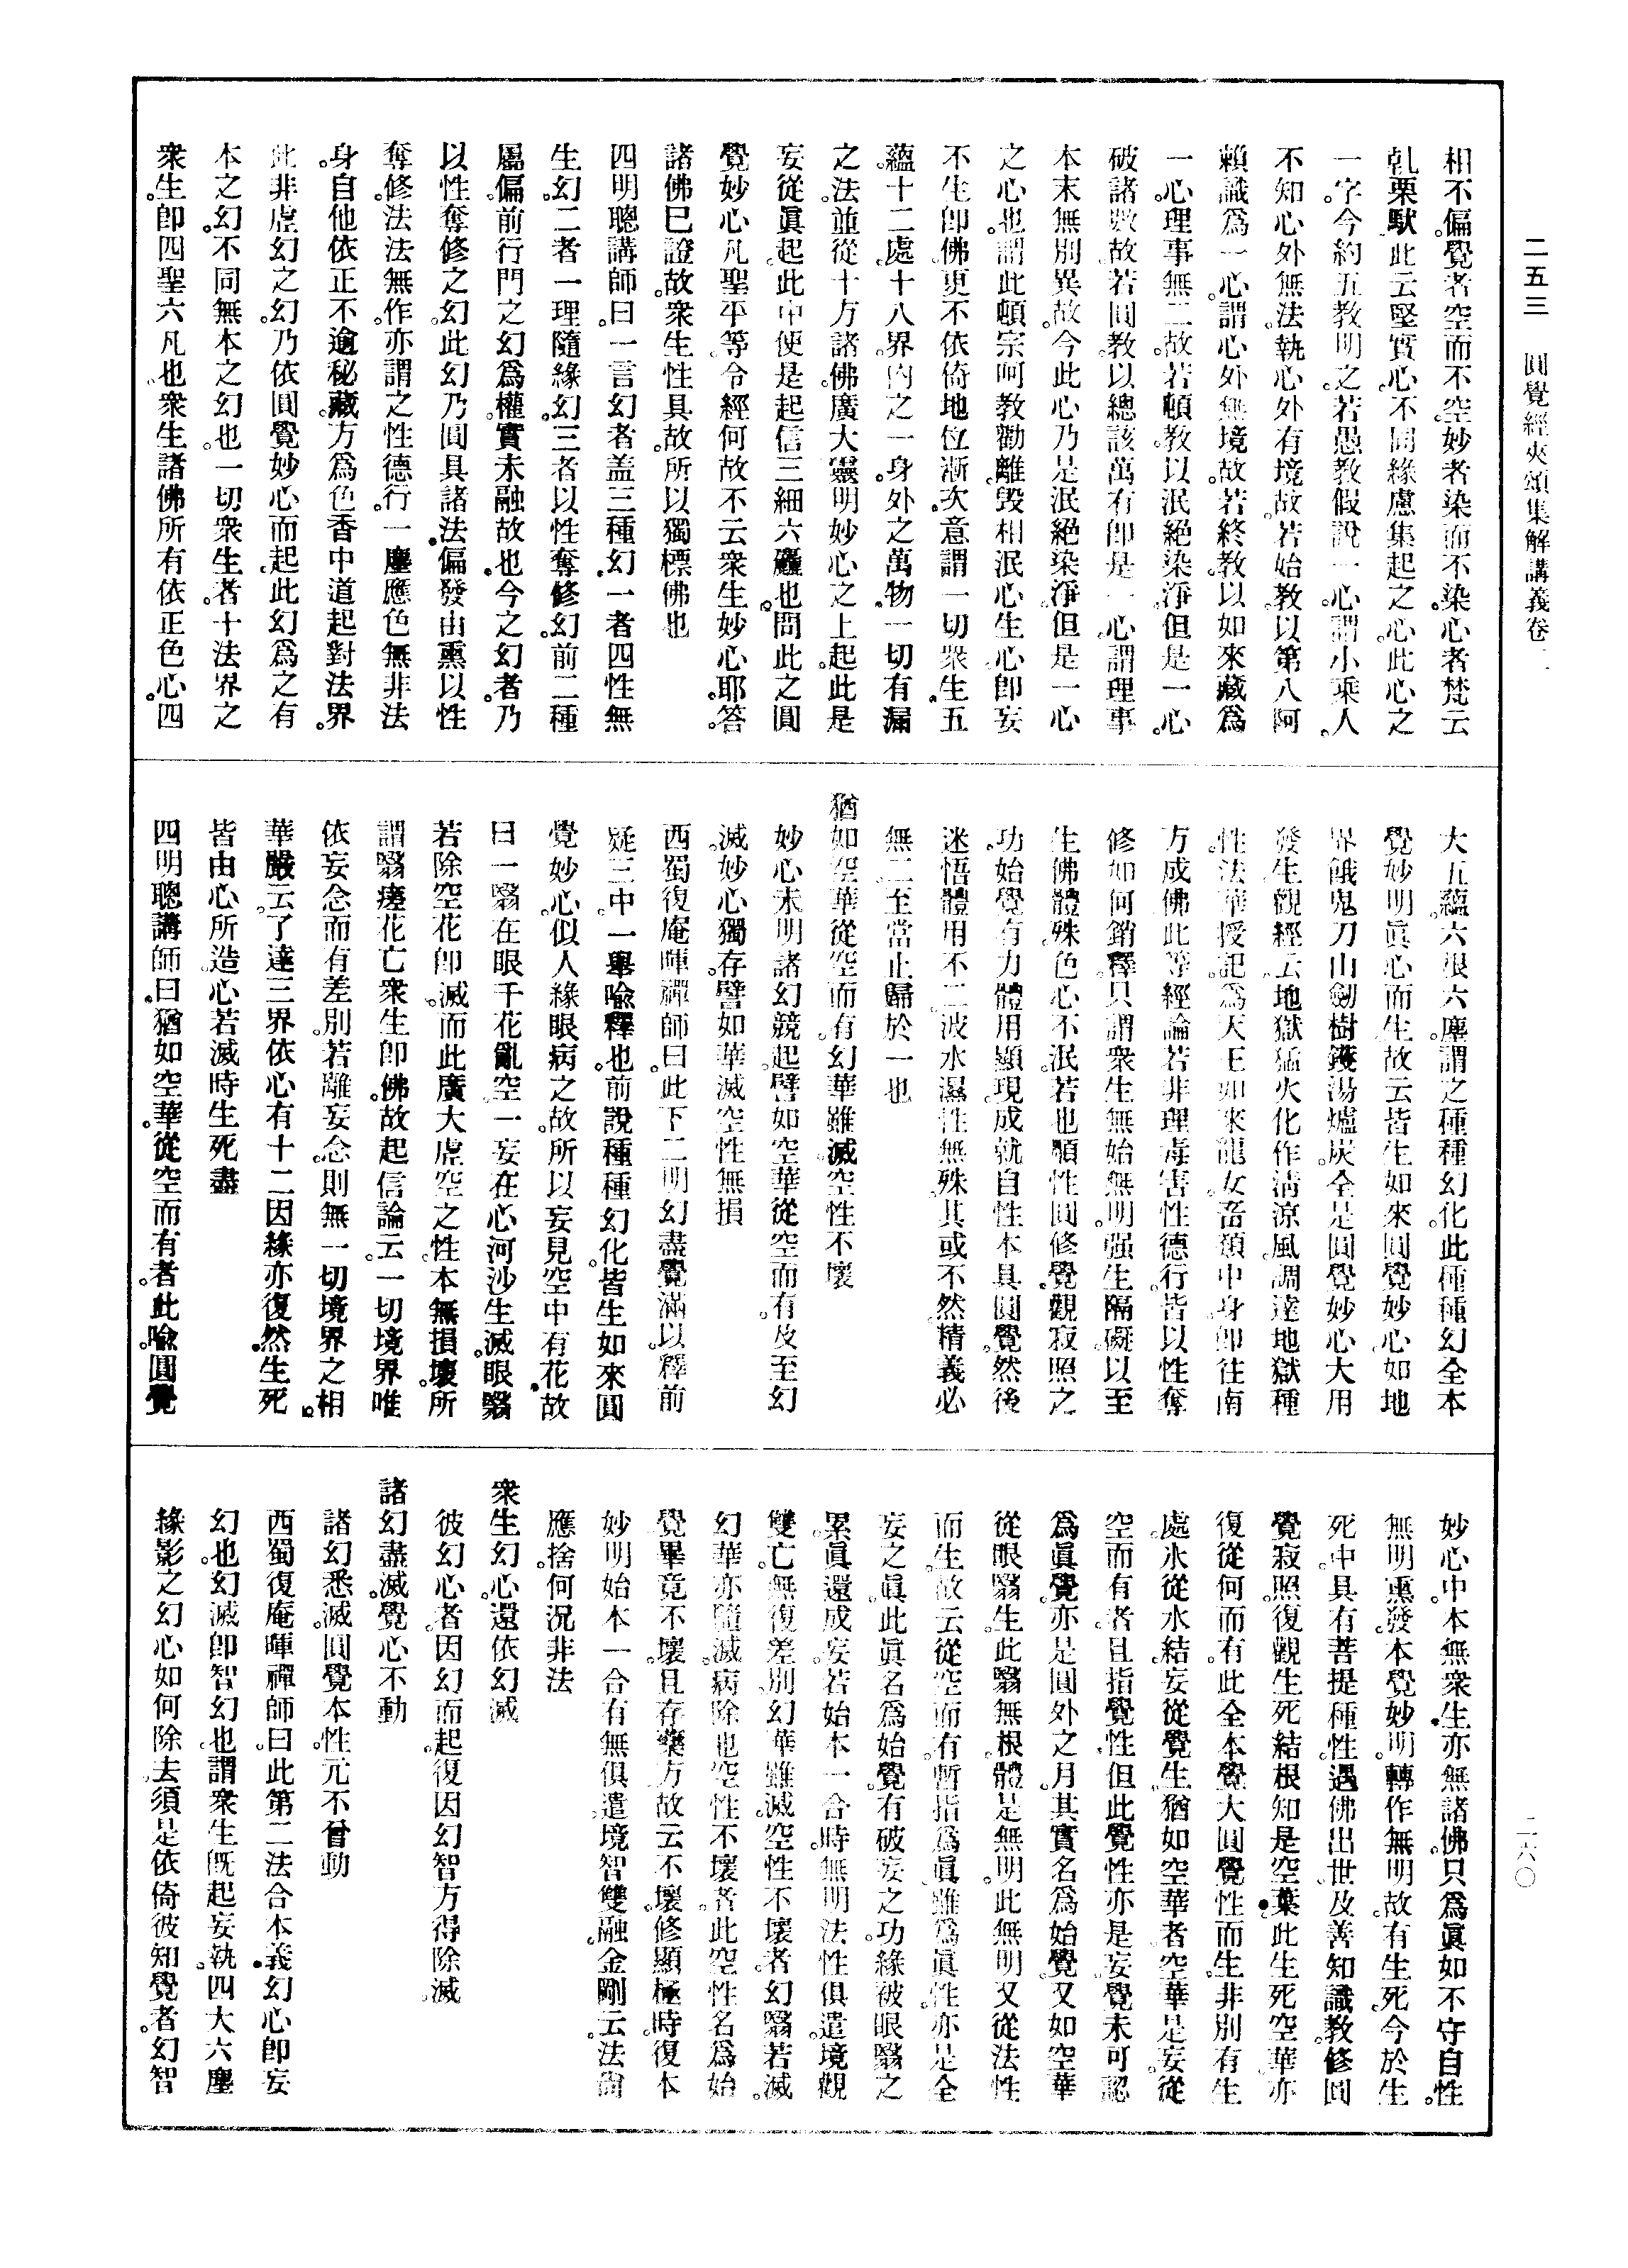 二五三　圓覺經夾頌集解講義卷二
二六〇
相不偏。覺者空而不空。妙者染而不染。心者梵云
乹栗馱。此云堅實心。不同緣慮集起之心。此心之
一字。今約五教明之。若愚教假說一心。謂小乘人。
不知心外無法。執心外有境故。若始教以第八阿
賴識爲一心。謂心外無境故。若終教以如來藏爲
一心。理事無二故。若頓教以泯絕染淨。但是一心。
破諸數故。若圓教以總該萬有。卽是一心。謂理事
本末無別異故。今此心乃是泯絕染淨。但是一心
之心也。謂此頓宗呵教勸離毀相泯心。生心卽妄
不生卽佛。更不依倚地位漸次。意謂一切衆生。五
蘊十二處十八界。內之一身。外之萬物。一切有漏
之法。並從十方諸佛。廣大靈明妙心之上。起此是
妄從眞起。此中便是起信三細六麤也。問此之圓
覺妙心。凡聖平等。令經何故不云衆生妙心耶。答
諸佛已證故。衆生性具故。所以獨標佛也
四明聰講師曰。一言幻者。盖三種幻。一者四性無
生幻。二者一理隨緣幻。三者以性奪修幻。前二種
屬偏前行門之幻爲權。實未融故也。今之幻者。乃
以性奪修之幻。此幻乃圓具諸法。偏發由熏以性
奪修。法法無作。亦謂之性德行。一塵應色無非法
身。自他依正。不逾秘藏。方爲色香中道。起對法界。
此非虛幻之幻。乃依圓覺妙心而起。此幻爲之有
本之幻。不同無本之幻也。一切衆生者。十法界之
衆生。卽四聖六凡也。衆生諸佛所有依正色心。四
大五蘊。六根六塵。謂之種種幻化。此種種幻。全本
覺妙明眞心而生。故云皆生如來圓覺妙心。如地
界餓鬼刀山劒樹鑊湯爐炭。全是圓覺妙心大用
發生。觀經云。地獄猛火化作淸涼風。調達地獄種
性。法華授記。爲天王如來。龍女畜類中身。卽往南
方成佛。此等經論。若非理毒害。性德行。皆以性奪
修。如何銷釋。只謂衆生無始無明。强生隔礙。以至
生佛體殊。色心不泯。若也顯性圓修。覺觀寂照之
功。始覺有力。體用顯現。成就自性。本具圓覺。然後
迷悟體用不二。波水濕性無殊。其或不然。精義必
無二至當止歸於一也
猶如空華從空而有。幻華雖滅空性不壞
妙心未明。諸幻競起。譬如空華從空而有。及至幻
滅。妙心獨存。譬如華滅空性無損
西蜀復庵暉禪師曰。此下二明幻盡覺滿。以釋前
疑三。中一舉喩釋也。前說種種幻化皆生如來圓
覺妙心。似人緣眼病之故。所以妄見空中有花。故
曰一翳在眼。千花亂空。一妄在心。河沙生滅。眼翳
若除。空花卽滅。而此廣大虛空之性。本無損壞。所
謂翳瘥花亡。衆生卽佛。故起信論云。一切境界。唯
依妄念而有差別。若離妄念。則無一切境界之相。
華嚴云。了達三界依心有。十二因緣亦復然。生死
皆由心所造。心若滅時生死盡
四明聰講師曰。猶如空華。從空而有者。此喩圓覺
妙心中。本無衆生。亦無諸佛。只爲眞如不守自性。
無明熏發。本覺妙明。轉作無明。故有生死。今於生
死中。具有菩提種性。遇佛出世。及善知識教。修圓
覺寂照。復觀生死結根。知是空華。此生死空華。亦
復從何而有。此全本覺大圓覺性而生。非別有生
處。水從水結。妄從覺生。猶如空華者。空華是妄。從
空而有者。且指覺性。但此覺性。亦是妄覺。未可認
爲眞覺。亦是圓外之月。其實名爲始覺。又如空華
從眼翳生。此翳無根。體是無明。此無明又從法性
而生。故云從空而有。暫指爲眞。雖爲眞性。亦是全
妄之眞。此眞名爲始覺。有破妄之功。緣被眼翳之
累。眞還成妄。若始本一合時。無明法性俱遣。境觀
雙亡。無復差別。幻華雖滅。空性不壞者。幻翳若滅。
幻華亦隨滅。病除也。空性不壞者。此空性名爲始
覺畢竟不壞。且存藥方。故云不壞。修顯極時。復本
妙明。始本一合。有無俱遣。境智雙融。金剛云。法尙
應捨何況非法
衆生幻心。還依幻滅
彼幻心者。因幻而起。復因幻智方得除滅。
諸幻盡滅。覺心不動
諸幻悉滅。圓覺本性元不曾動
西蜀復庵暉禪師曰。此第二法合本義。幻心卽妄
幻也。幻滅卽智幻也。謂衆生旣起妄執。四大六塵
緣影之幻心。如何除去。須是依倚彼知覺者。幻智